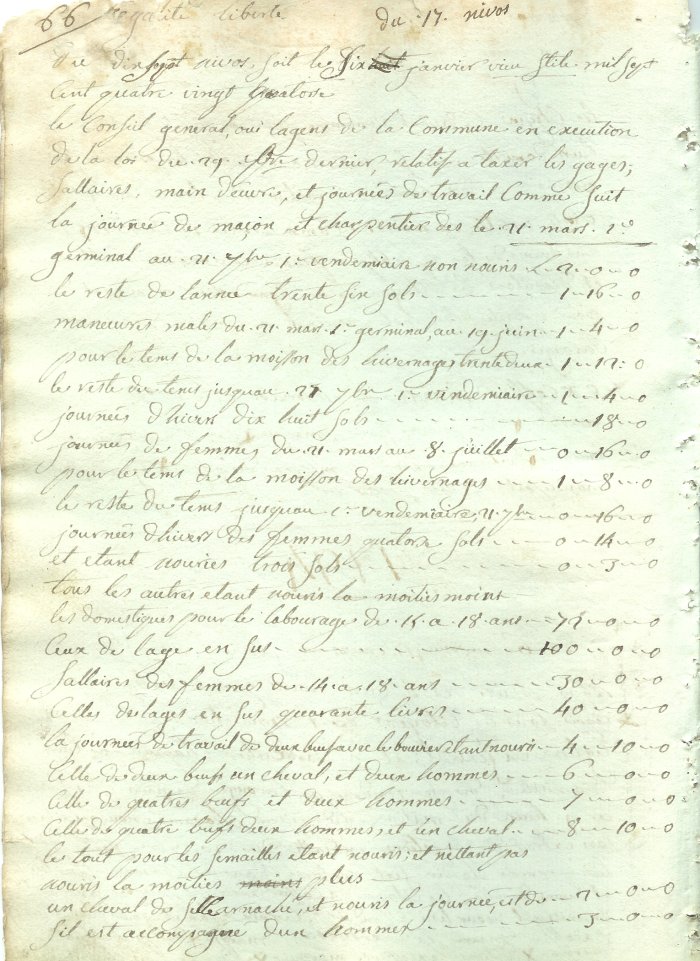 66 egalité liberté du 17. nivos
Du dix sept nivos, soit le Six janvier vieu Stile mil sept
Cent quatre vingt quatorse
le Conseil general, oui lagens de la Commune en execution
de la loi du 29 dernier, relatif a taxer les gages,
Sallaires, main d'euvre, et journées de travail Comme Suit
la journée de maçon et charpentier des le 21 mars 1er
germinal au 21 7bre 1er vendemiaire non nouris L 2-0-0
le reste de lannée trente six sols 1-16-0
manœuvres males du 21 mars 1er germinal, au 19 juin 1-4-0
pour le tems de la moisson des hivernages trente deux 1-12-0
le reste du tems jusquau 21 7bre 1er vendemiaire 1-4-0
journées dhivers dix huit sols 18-0
journées de femmes du 21 mars au 8 juillet 0-16-0
pour le tems de la moisson des hivernages 1-8-0
le reste du tems jusquau 1er vendemiaire, 21 7bre 0-16-0
journées dhivers des femmes quatorse sols 0-14-0
et etant nouries trois sols 0-3-0
tous les autres etant nouris la moitiés moins
les domestiques pour le labourage de 15 a 18 ans 72-0-0
Ceux de lage en sus 100-0-0
Sallaires des femmes de 14 a 18 ans 30-0-0
Celles des lages en sus quarante livres 40-0-0
la journées de travail de deux beufs avec le bouvier etant nouris 4-10-0
Celle de deux beufs un cheval, et deux hommes 6-0-0
Celle de quatres bœufs et deux hommes 7-0-0
Celle de quatre beufs deux hommes et un cheval 8-10-0
le tout pour les semailles etant nouris; et nettant pas
nouris la moities moins plus
un cheval de Selle arnaché, et nouris la journée, est de 2-0-0
Sil est accompagne dun hommes 3-0-0